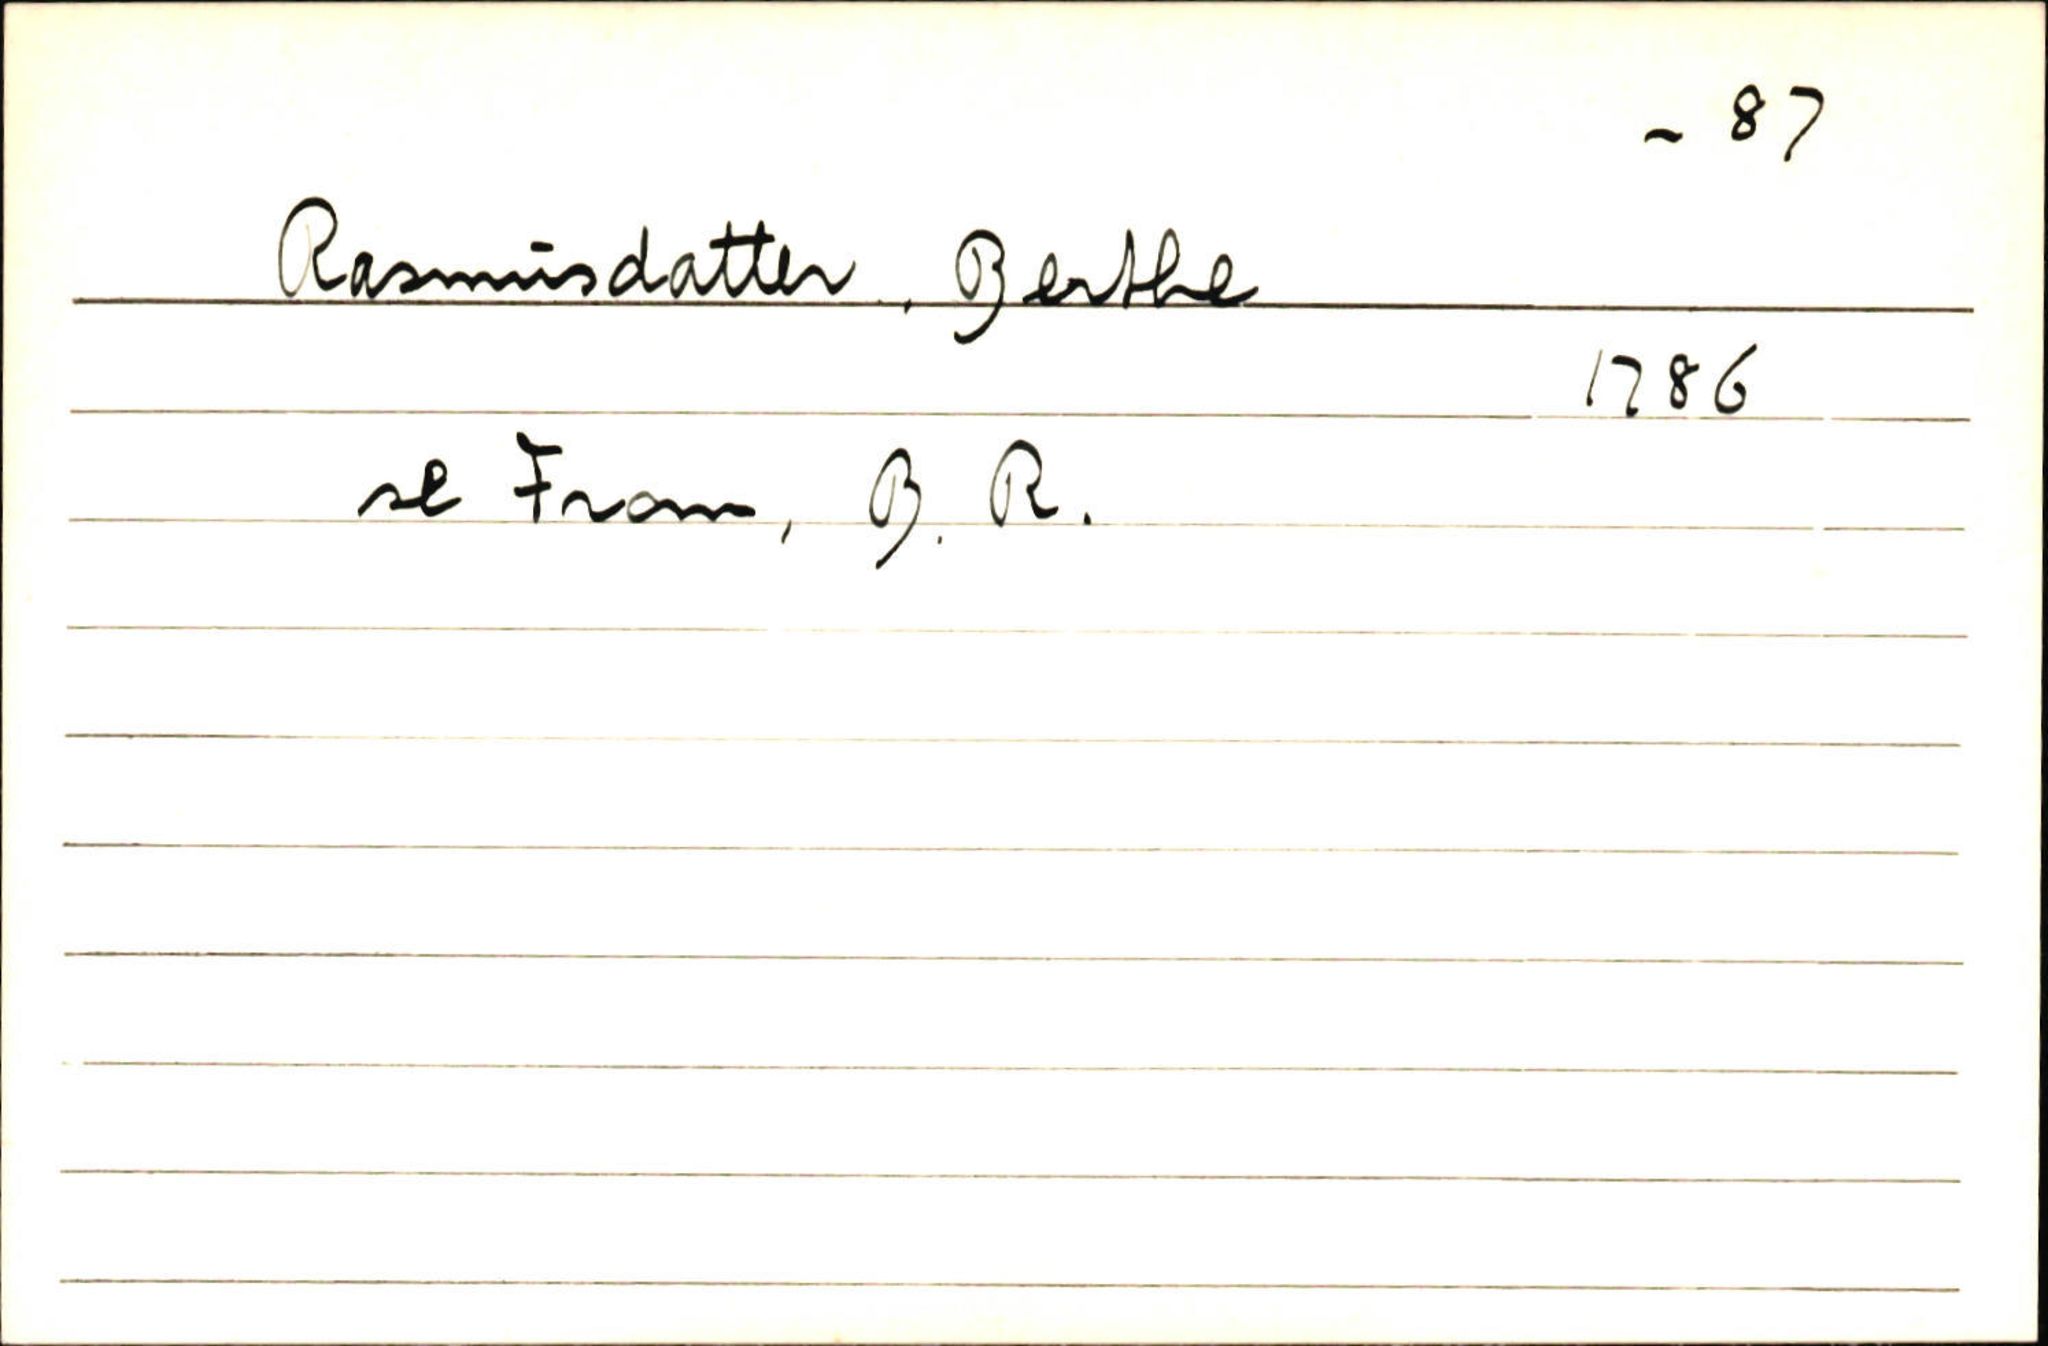 - 87
Rasmusdatter, Berthe
1786
se From, B. R.